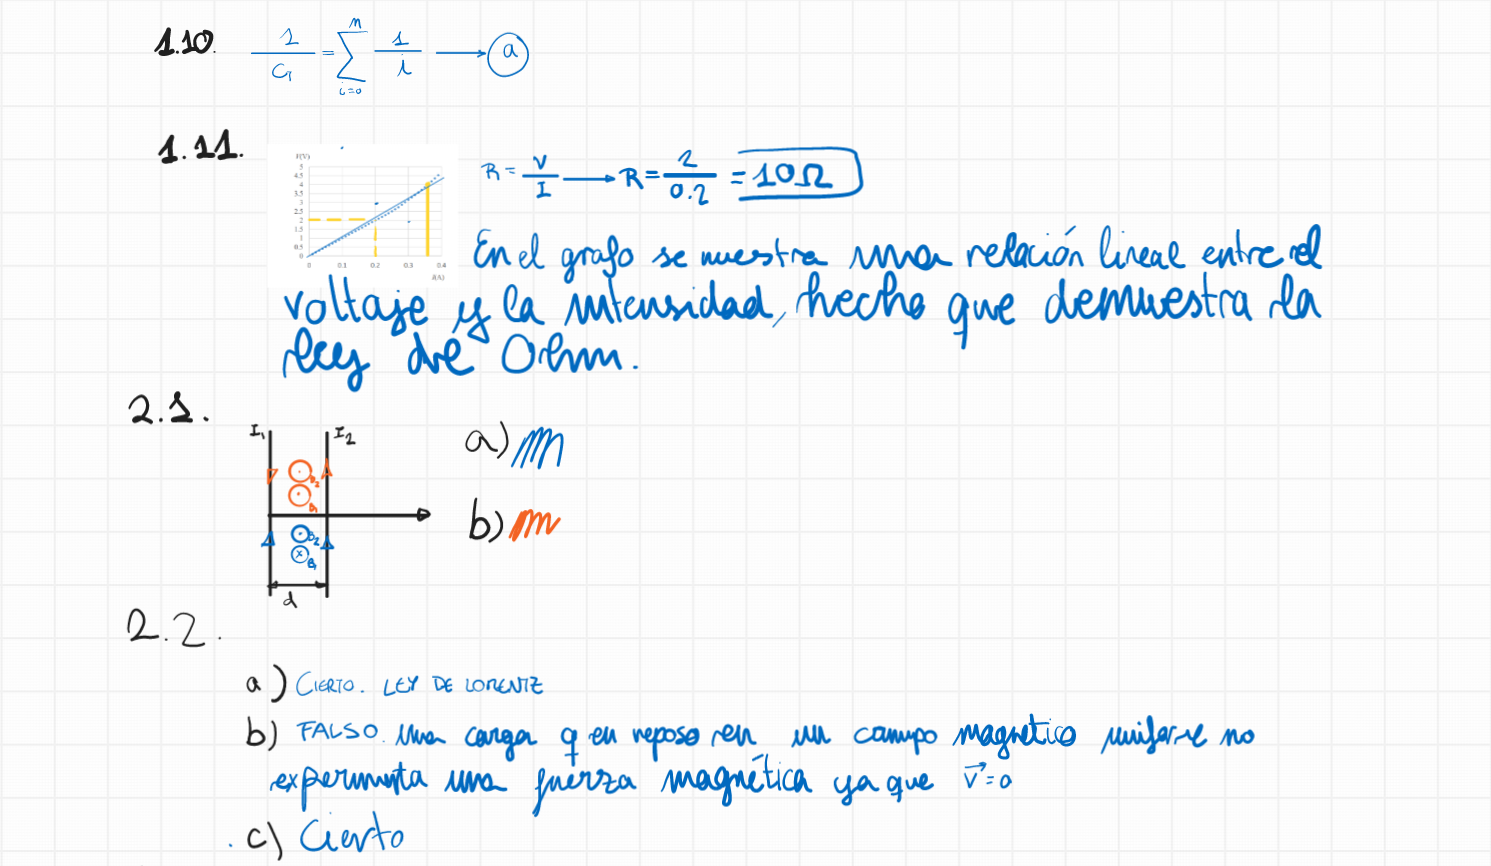 1.10. 1/C₁ = ∑ᵢ₌₀ⁿ 1/i → a
1.11.
V(V)
5
4.5
4
3.5
3
2.5
2
1.5
1
0.5
0
0 0.1 0.2 0.3 0.4
I(A)
R = V/I → R = 2/0.2 = 10Ω
En el grafo se muestra una relación lineal entre el
voltaje y la intensidad, hecho que demuestra la
ley de Ohm.
2.1.
I₁ I₂
a)
B₂
B₁
b)
B₂
B₁
d
2.2.
a) CIERTO. LEY DE LORENTZ
b) FALSO. Una carga q en reposo en un campo magnético uniforme no
experimenta una fuerza magnética ya que v⃗=0
c) Cierto